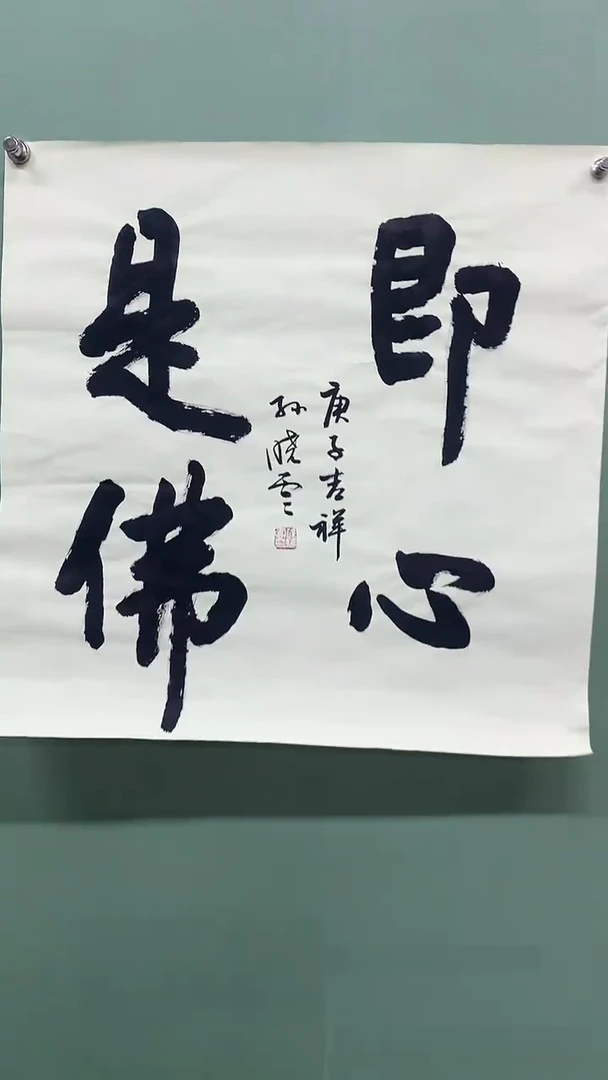 即心
是佛
庚子吉祥
孙晓云